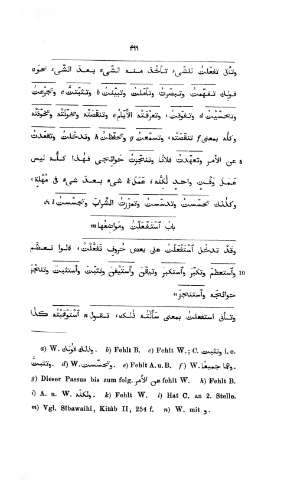 ٤٩٩
وتأتى تفعّلت للشىء تأخذ منه الشىء بعد الشىء نحو
قولك تفهّمت وتبصّرت وتأمّلت وتبيّنت b وتثبّتت c وتجرّعت
وتحسّيت d وتفوّقت، وتعرّقته الأيّام e وتنقّصته وتخوّنته وتخوّفته
وكلّه بمعنى f تنقّصته، وتسمّعت g وتحفّظت h وتدخّلت وتقعّدت
عن الأمر وتعهّدت فلانا وتنجّزت حوائجى فهذا كلّه ليس
عمل وقت واحد لكنّه i عمل k شىء بعد شىء فى مهلة،
وكذلك تحسّست وتدسّست وتمزّزت الشراب وتجسّست l
باب استفعلت ومواضعها m
وقد تدخل استفعلت على بعض حروف تفعّلت، قالوا تعظّم
واستعظم وتكبّر واستكبر وتيقّن واستيقن وتثبّت واستثبت وتنجّز 10
حوائجه واستنجز n
وتأتى استفعلت بمعنى سألته ذلك، تقول n استوهبته كذا
a) W. وذلك قولك. b) Fehlt B. c) Fehlt W.; C. وتثبتت i. e.
وتثبّت. d) W. وتحسّست. e) Fehlt A. u. B. f) W. وهما جميعا.
g) Dieser Passus bis zum folg. عن الأمر fehlt W. h) Fehlt B.
i) A. u. W. ولكنه. k) Fehlt W. l) Hat C. an 2. Stelle.
m) Vgl. Sîbawaihi, Kitâb II, 254 f. n) W. mit و.